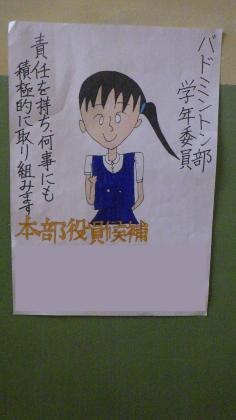 バドミントン部
学年委員
責任を持ち、何事にも
積極的に取り組みます
本部役員候補